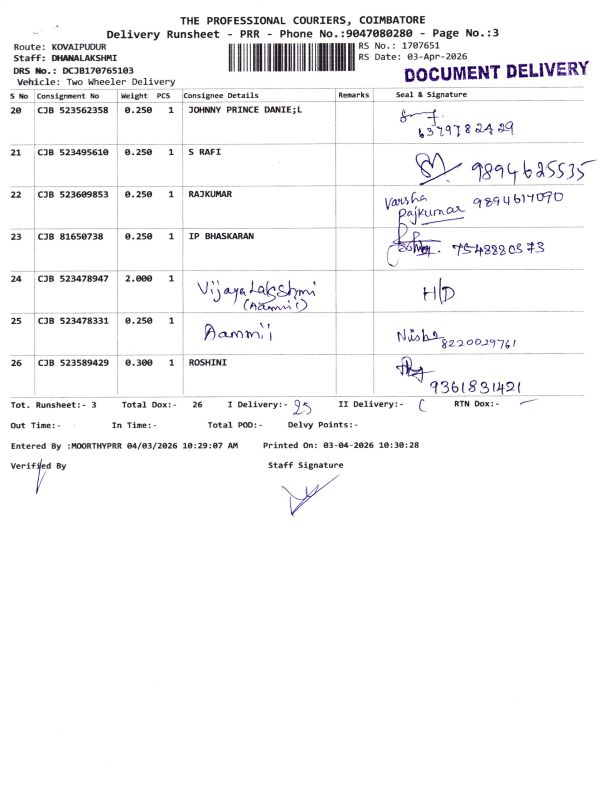 THE PROFESSIONAL COURIERS, COIMBATORE
Delivery Runsheet - PRR - Phone No.:9047080280 - Page No.:3
Route: KOVAIPUDUR RS No.: 1707651
Staff: DHANALAKSHMI RS Date: 03-Apr-2026
DRS No.: DCJB170765103 DOCUMENT DELIVERY
Vehicle: Two Wheeler Delivery
S No Consignment No Weight PCS Consignee Details Remarks Seal & Signature
20 CJB 523562358 0.250 1 JOHNNY PRINCE DANIE;L
6379782429
21 CJB 523495610 0.250 1 S RAFI
9894625535
22 CJB 523609853 0.250 1 RAJKUMAR Varsha 9894617090
Rajkumar
23 CJB 81650738 0.250 1 IP BHASKARAN
7548880573
24 CJB 523478947 2.000 1 Vijaya Lakshmi H/D
(Aammii)
25 CJB 523478331 0.250 1 Aammii Nisha
8220029761
26 CJB 523589429 0.300 1 ROSHINI
9361831421
Tot. Runsheet:- 3 Total Dox:- 26 I Delivery:- 25 II Delivery:- RTN Dox:- –
Out Time:- In Time:- Total POD:- Delvy Points:-
Entered By :MOORTHYPRR 04/03/2026 10:29:07 AM Printed On: 03-04-2026 10:30:28
Verified By Staff Signature